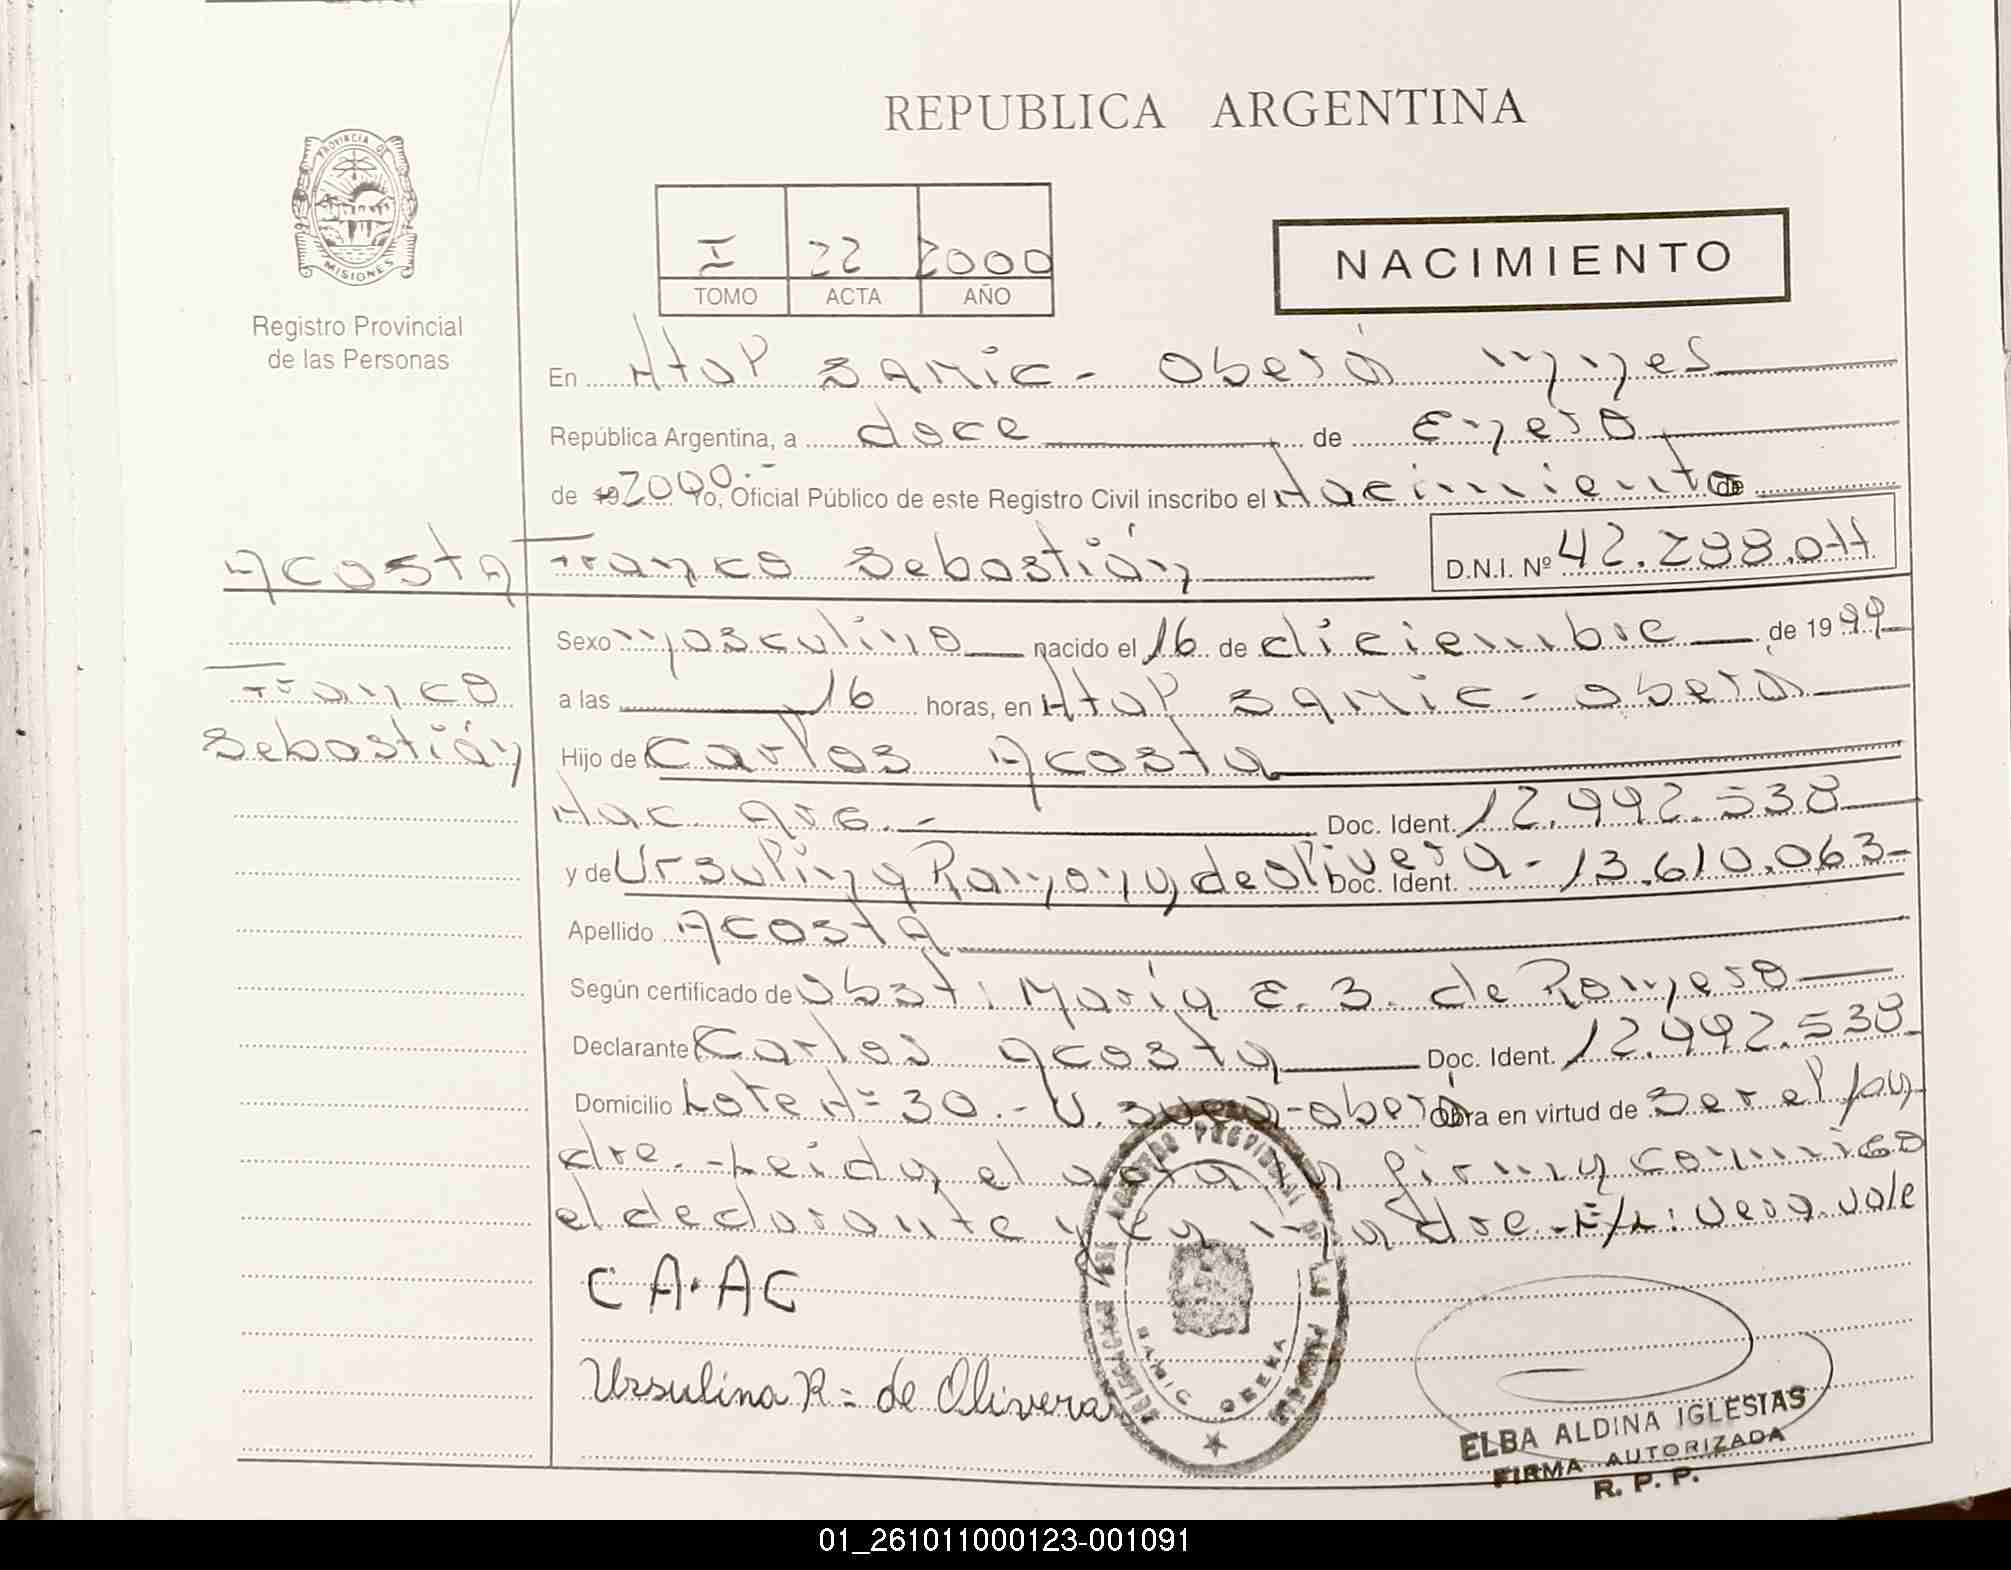 REPUBLICA ARGENTINA
PROVINCIA DE
MISIONES
Registro Provincial
de las Personas
I 22 2000
TOMO ACTA AÑO
NACIMIENTO
En Htal SAMIC - Oberá Mnes
República Argentina, a doce de Enero
de 19 2000.- Yo, Oficial Público de este Registro Civil inscribo el Nacimiento de
Acosta Franco Sebastián D.N.I. Nº 42.298.077
Sexo masculino nacido el 16 de diciembre de 1999
Franco
Sebastián
a las 16 horas, en Htal SAMIC - Oberá
Hijo de Carlos Acosta
Nac. Arg.- Doc. Ident. 12.992.538
y de Ursulina Ramona de Olivera - Doc. Ident. 13.610.063-
Apellido Acosta
Según certificado de Obst: María E. B. de Romero
Declarante Carlos Acosta Doc. Ident. 12.992.538
Domicilio Lote Nº 30.- V. -Oberá Obra en virtud de ser el pa-
dre.- Leída el acta la firma conmigo
el declarante y la madre.- E/L: vera. vale
CA. AC
Ursulina R= de Olivera
SAMIC OBERA
ELBA ALDINA IGLESIAS
FIRMA AUTORIZADA
R. P. P.
01_261011000123-001091